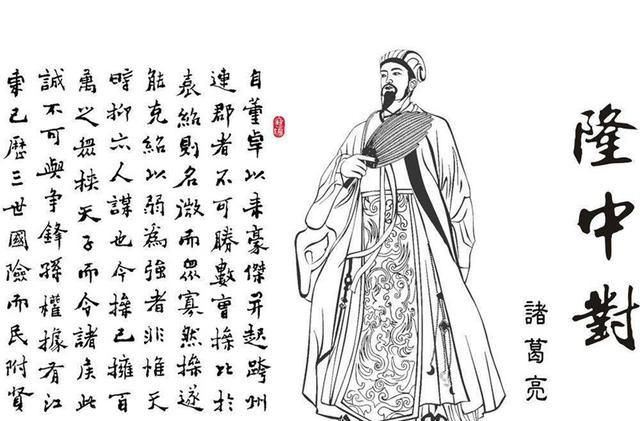 隆中對
諸葛亮
自董卓以来豪傑并起跨州
連郡者不可勝數曹操比於
袁紹則名微而眾寡然操遂
能克紹以弱為強者非惟天
時抑亦人謀也今操已擁百
萬之眾挾天子而令諸侯此
誠不可與争鋒孫權據有江
東已歷三世國險而民附賢